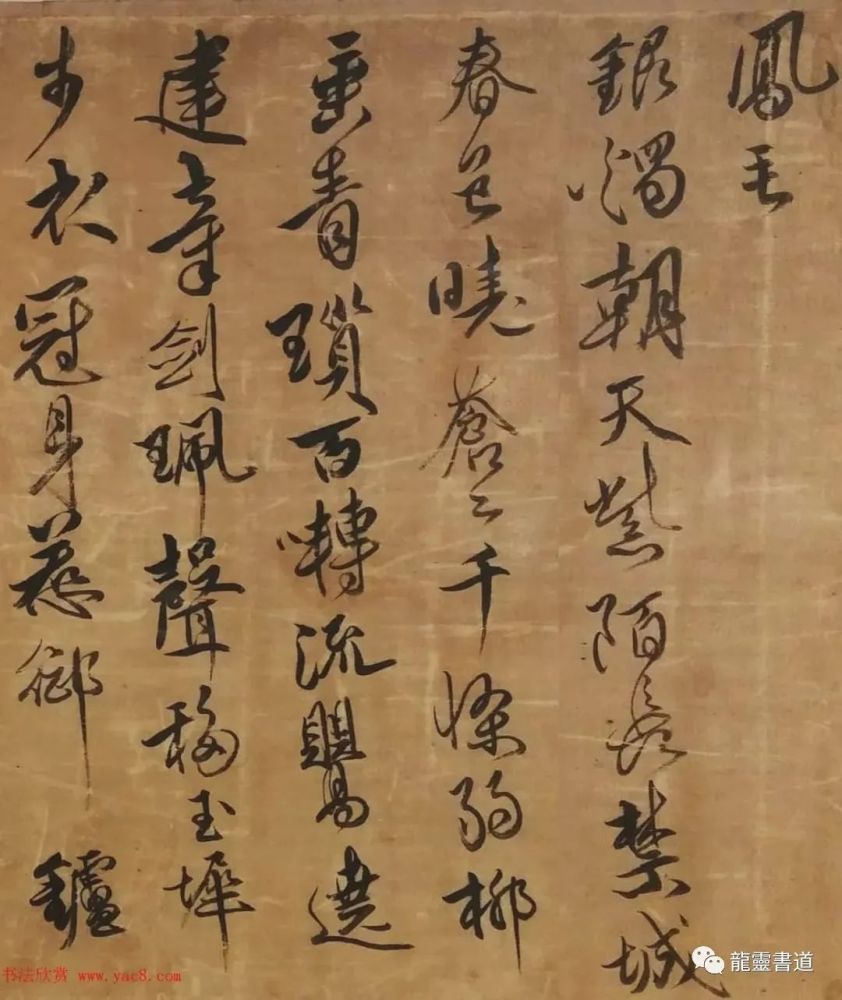 鳳毛
銀燭朝天紫陌長禁城
春色曉蒼〻千條弱柳
垂青瑣百囀流鸎遶
建章劍珮聲移玉墀
步衣冠身惹御鑪
书法欣赏 www.yac8.com
龍靈書道